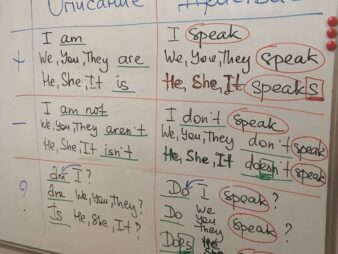 Описание
+
I am
We, You, They are
He, She, It is
I speak
We, You, They speak
He, She, It speaks
-
I am not
We, You, They aren't
He, She, It isn't
I don't speak
We, You, They don't speak
He, She, It doesn't speak
?
am I?
are We, You, They?
Is He, She, It?
Do I speak?
Do We You They speak?
Does He She speak?